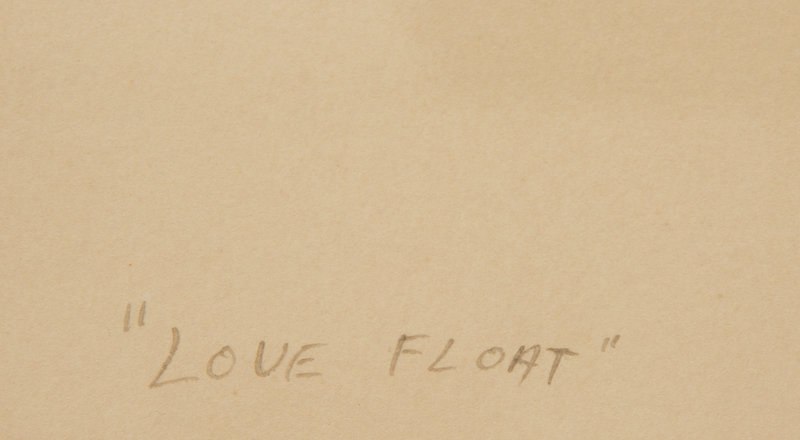 "LOVE FLOAT"